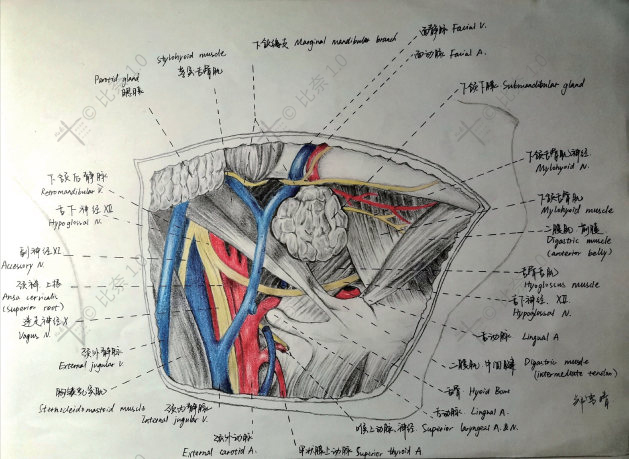 下颌缘支 Marginal mandibular branch
面静脉 Facial V.
面动脉 Facial A.
Stylohyoid muscle
茎突舌骨肌
Parotid gland
腮腺
下颌下腺 Submandibular gland
下颌后静脉
Retromandibular V.
舌下神经 XII
Hypoglossal N.
副神经 XI
Accessory N.
颈袢 上根
Ansa cervicalis
(superior root)
迷走神经 X
Vagus N.
颈外静脉
External jugular V.
胸锁乳突肌
Sternocleidomastoid muscle
颈内静脉
Internal jugular V.
颈外动脉
External carotid A.
甲状腺上动脉 Superior thyroid A
喉上动脉、神经 Superior laryngeal A. & N.
舌动脉 Lingual A.
舌骨 Hyoid Bone
二腹肌 中间腱 Digastric muscle
(intermediate tendon)
舌动脉 Lingual A
舌下神经 XII
Hypoglossal N.
舌骨舌肌
Hyoglossus muscle
二腹肌 前腹
Digastric muscle
(anterior belly)
下颌舌骨肌
Mylohyoid muscle
下颌舌骨肌神经
Mylohyoid N.
© 比奈 10